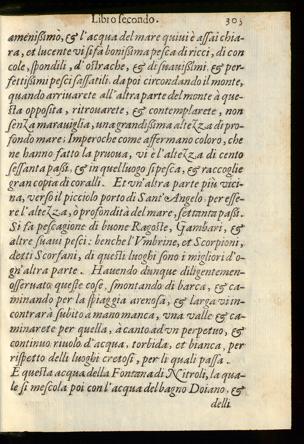 Libro secondo. 303
amenißimo, & l'acqua del mare quiui è assai chia-
ra, et lucente vi si fa bonißima pesca di ricci, di con
cole, spondili, d'ostrache, & di suauißimi. & per-
fettißimi pesci sassatili. da poi circondando il monte,
quando arriuarete all'altra parte del monte à que-
sta opposita, ritrouarete, & contemplarete, non
senza marauiglia, una grandißima altezza di pro-
fondo mare; Imperoche come affermano coloro, che
ne hanno fatto la pruoua, vi è l'altezza di cento
sessanta paßi, & in quel luogo si pesca, & raccoglie
gran copia di coralli. Et vn'altra parte più vici-
na, verso il picciolo porto di Sant'Angelo, per esse-
re l'altezza, ò profondità del mare, settanta paßi.
Si fa pescagione di buone Ragoste, Gambari, &
altre suaui pesci: benche l'Vmbrine, et Scorpioni,
detti Scorfani, di questi luoghi sono i migliori d'o-
gn'altra parte. Hauendo dunque diligentemen-
osseruato queste cose, smontando di barca, & ca-
minando per la spiaggia arenosa, & larga vi in-
contrarà subito a mano manca, vna valle & ca-
minarete per quella, à canto ad vn perpetuo, &
continuo riuolo d'acqua, torbida, et bianca, per
rispetto delli luoghi cretosi, per li quali passa.
E questa acqua della Fontana di Nitroli, la qua-
le si mescola poi con l'acqua del bagno Doiano, &
delli